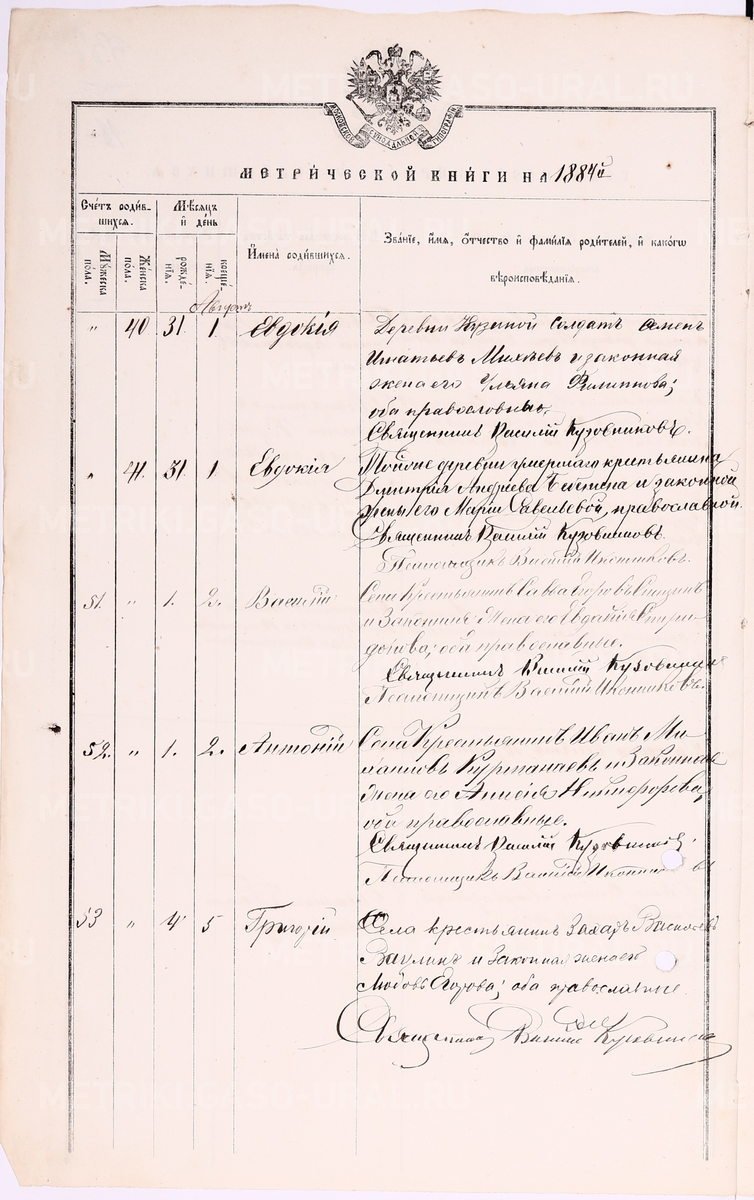 МОСКОВСКОЙ СѴНОДАЛЬНОЙ ТИПОГРАФІИ
МЕТРИ́ЧЕСКОЙ КНИ́ГИ НА 1884й
Сче́тъ роди́в-
шихся.
Мѣ́сяцъ
и де́нь
И́мена̀ роди́вшихся.
Зва́нїе, и́мя, ѻ҆́тчество и҆ фами́лїя роди́телей, и҆ како́гѡ
вѣроисповѣ́данїя.
Мꙋ́жеска
по́ла.
Же́нска
по́ла.
рожде́-
нїя.
креще́-
нїя.
Августъ
" 40 31. 1. Евдокія
Деревни Кузиной солдатъ Семенъ
Игнатьевъ Михѣевъ и законная
жена его Ульяна Филиппова;
оба православные.
Священникъ Василій Кузовниковъ.
" 41. 31. 1 Евдокія
Той же деревни умершаго крестьянина
Дмитрія Андреева и законной
жены его Маріи Савельевой, православной.
Священникъ Василій Кузовниковъ
Псаломщикъ Василій Иконниковъ.
51. " 1. 2. Василій
Села Крестьянинъ Савва
и Законная Жена его Евдокія Спири-
донова; оба православные.
Священникъ Василій Кузовниковъ
Псаломщикъ Василій Иконниковъ.
52. " 1. 2. Антоній
Села Крестьянинъ Иванъ Ми-
хаиловъ Курманаевъ и Законная
Жена его Анисія Никифорова,
оба православные.
Священникъ Василій Кузовниковъ
Псаломщикъ Василій Иконниковъ
53 " 4 5 Григорій
Села крестьянинъ Захаръ Васильевъ
Ваулинъ и Законная жена его
Любовь Егорова; оба православные
Священникъ Василій Кузовниковъ